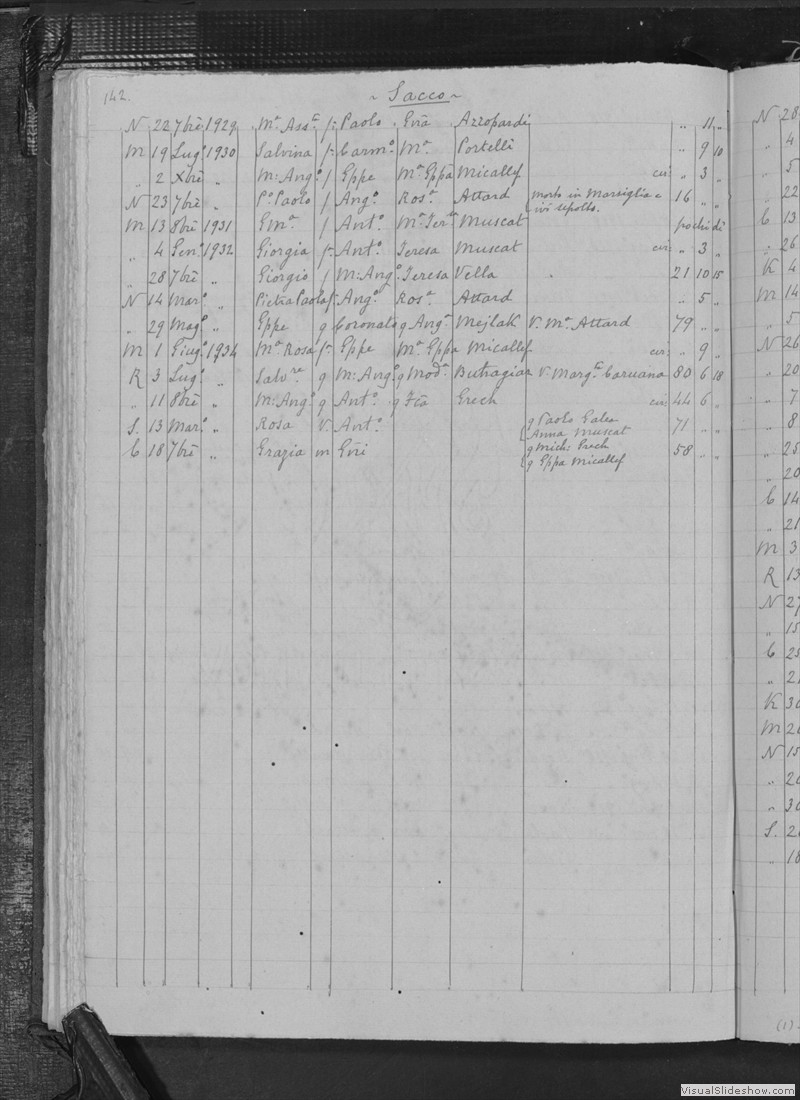 142.
~ Sacco ~
N 22 7bre 1929 Mª Assª f: Paolo Gnã Azzopardi „ 11 „
M 19 Lugº 1930 Salvina f: Carmº Mª Portelli „ 9 10
„ 2 Xbre „ M: Angº f Eppe Mª Eppa Micallef cir: „ 3 „
N 23 7bre „ Pº Paolo f Angº Rosª Attard morto in Marsiglia e 16 „ „
ivi sepolto.
M 13 8bre 1931 Emª f Antº Mª Terª Muscat pochi di
„ 4 Genº 1932 Giorgia f: Antº Teresa Muscat cir: „ 3 „
„ 28 7bre Giorgio f M: Angº Teresa Vella 21 10 15
N 14 Marº „ Pietra Paola f: Angº Rosª Attard „ 5 „
„ 29 Magº „ Eppe g Coronato g Angª Mejlak V. Mª Attard 79 „ „
M 1 Giugº 1934 Mª Rosa f: Eppe Mª Eppa Micallef cir: „ 9 „
R 3 Lugº „ Salvre g M: Angº g Modª Buttagiar V. Margta Caruana 80 6 18
„ 11 8bre „ M: Angº g Antº g Fca Grech cir: 44 6 „
S. 13 Marº „ Rosa V. Antº g Paolo Galea 71 „ „
Anna Muscat
C 18 7bre „ Grazia m Gnri g Mich: Grech 58 „ „
g Eppa Micallef
N 28
„ 4
„ 5
„ 22
C 13
„ 26
K 4
M 14
„ 5
N 26
„ 20
„ 7
„ 8
„ 25
„ 20
C 14
„ 21
M 3
R 13
N 27
„ 15
C 25
„ 21
K 30
M 20
N 15
„ 20
„ 30
S. 2
„ 18
(1)
VisualSlideshow.com